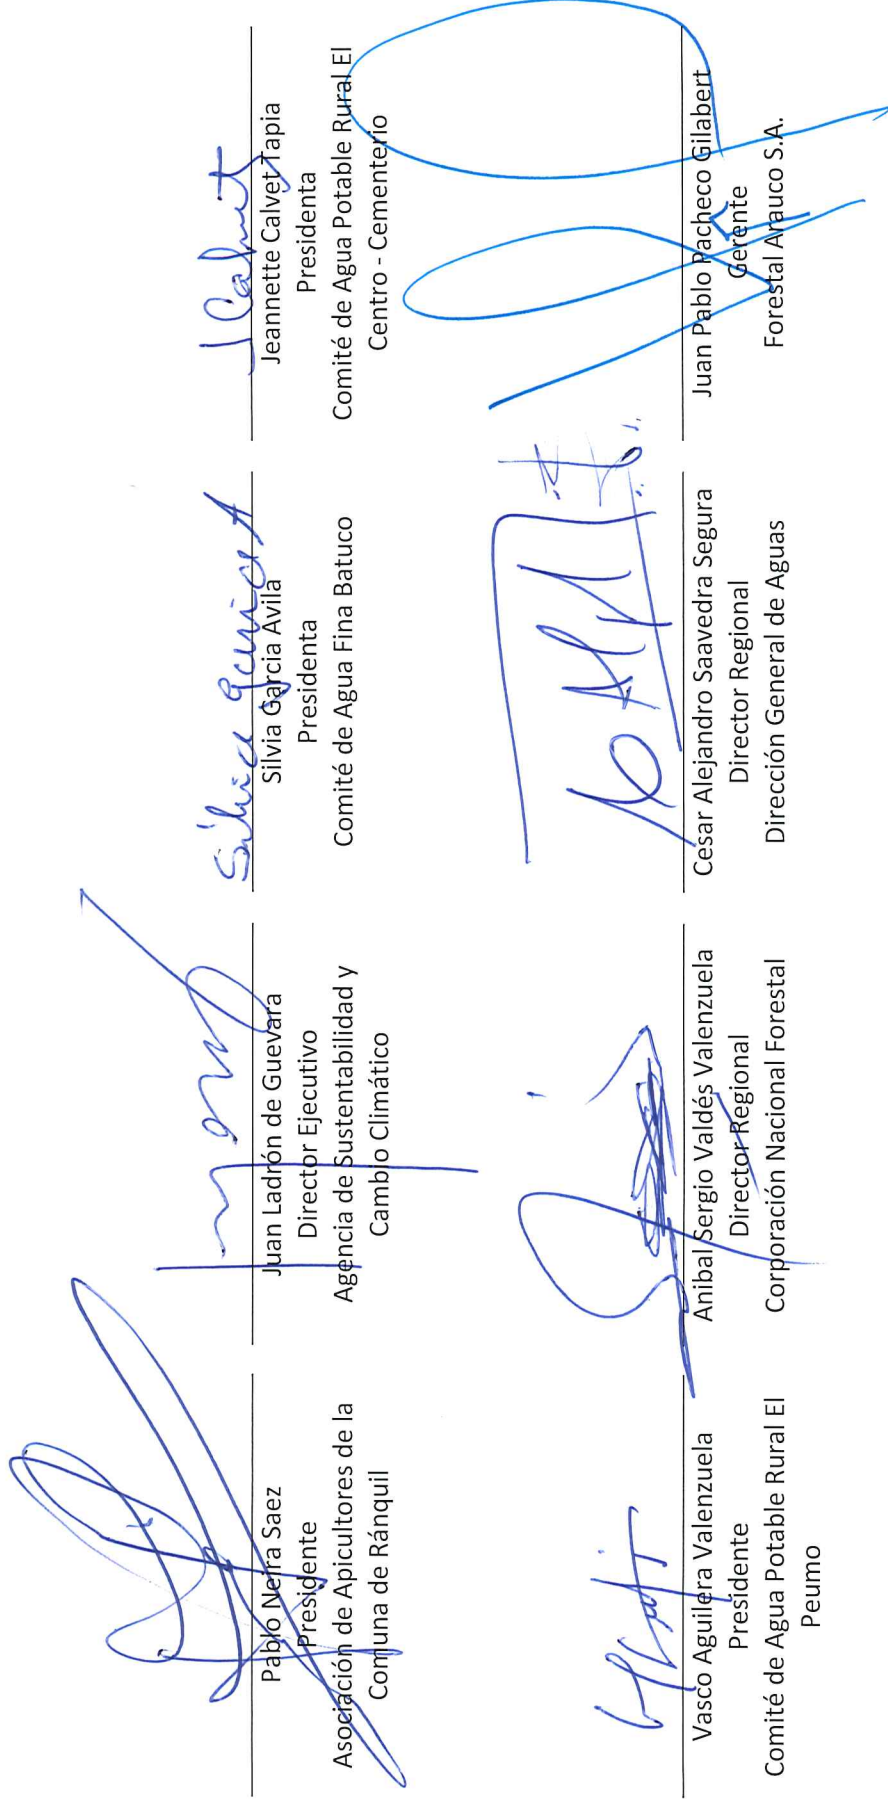 Pablo Neira Saez
Presidente
Asociación de Apicultores de la
Comuna de Ránquil
Juan Ladrón de Guevara
Director Ejecutivo
Agencia de Sustentabilidad y
Cambio Climático
Silvia Garcia
Silvia Garcia Avila
Presidenta
Comité de Agua Fina Batuco
J Calvet
Jeannette Calvet Tapia
Presidenta
Comité de Agua Potable Rural El
Centro - Cementerio
Vasco Aguilera Valenzuela
Presidente
Comité de Agua Potable Rural El
Peumo
Anibal Sergio Valdés Valenzuela
Director Regional
Corporación Nacional Forestal
Cesar Alejandro Saavedra Segura
Director Regional
Dirección General de Aguas
Juan Pablo Pacheco Gilabert
Gerente
Forestal Arauco S.A.